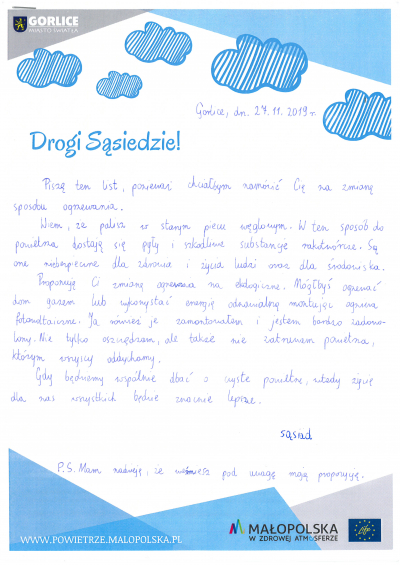 GORLICE
MIASTO ŚWIATŁA
Gorlice, dn. 27.11.2019 r.
Drogi Sąsiedzie!
Piszę ten list, ponieważ chciałbym namówić Cię na zmianę
sposobu ogrzewania.
Wiem, że palisz w starym piecu węglowym. W ten sposób do
powietrza dostają się pyły i szkodliwe substancje rakotwórcze. Są
one niebezpieczne dla zdrowia i życia ludzi oraz dla środowiska.
Proponuję Ci zmianę ogrzewania na ekologiczne. Mógłbyś ogrzewać
dom gazem lub wykorzystać energię odnawialną montując ogniwa
fotowoltaiczne. Ja również je zamontowałem i jestem bardzo zadowo-
lony. Nie tylko oszczędzam, ale także nie zatruwam powietrza,
którym wszyscy oddychamy.
Gdy będziemy wspólnie dbać o czyste powietrze, wtedy życie
dla nas wszystkich będzie znacznie lepsze.
sąsiad
P.S. Mam nadzieję, że weźmiesz pod uwagę moją propozycję.
WWW.POWIETRZE.MALOPOLSKA.PL
MAŁOPOLSKA
W ZDROWEJ ATMOSFERZE
life